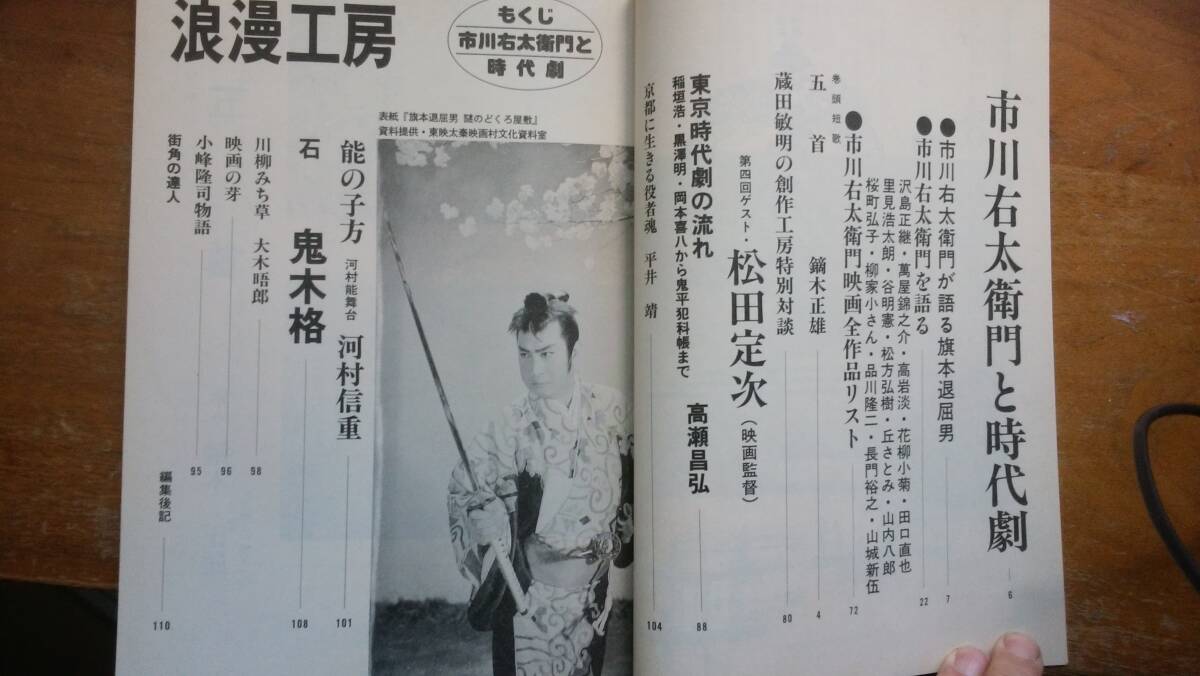 市川右太衛門と時代劇 6
●市川右太衛門が語る旗本退屈男 7
●市川右太衛門を語る 22
沢島正継・萬屋錦之介・高岩淡・花柳小菊・田口直也
里見浩太朗・谷明憲・松方弘樹・丘さとみ・山内八郎
桜町弘子・柳家小さん・品川隆二・長門裕之・山城新伍
●市川右太衛門映画全作品リスト 72
巻頭短歌
五首 鏑木正雄 4
蔵田敏明の創作工房特別対談 80
第四回ゲスト・松田定次(映画監督)
東京時代劇の流れ 高瀬昌弘 88
稲垣浩・黒澤明・岡本喜八から鬼平犯科帳まで
京都に生きる役者魂 平井靖 104
もくじ
市川右太衛門と
時代劇
浪漫工房
表紙『旗本退屈男 謎のどくろ屋敷』
資料提供・東映太秦映画村文化資料室
能の子方 河村能舞台 河村信重 101
石 鬼木格 108
川柳みち草 大木晤郎 98
映画の芽 96
小峰隆司物語 95
街角の達人
編集後記 110